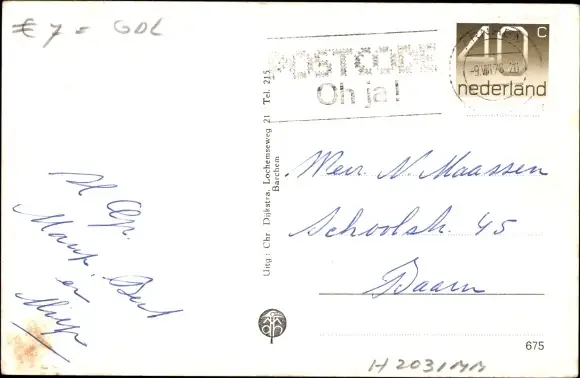 € 7 = GDL
POSTCODE
Oh ja!
40 c
nederland
Uitg.: Chr. Dijkstra, Lochemseweg 21 Tel. 215
Barchem
Wew. N. Maassen
Schoolstr. 45
Baarn
H Gr.
Bert
en
Miep
675
H2031MM